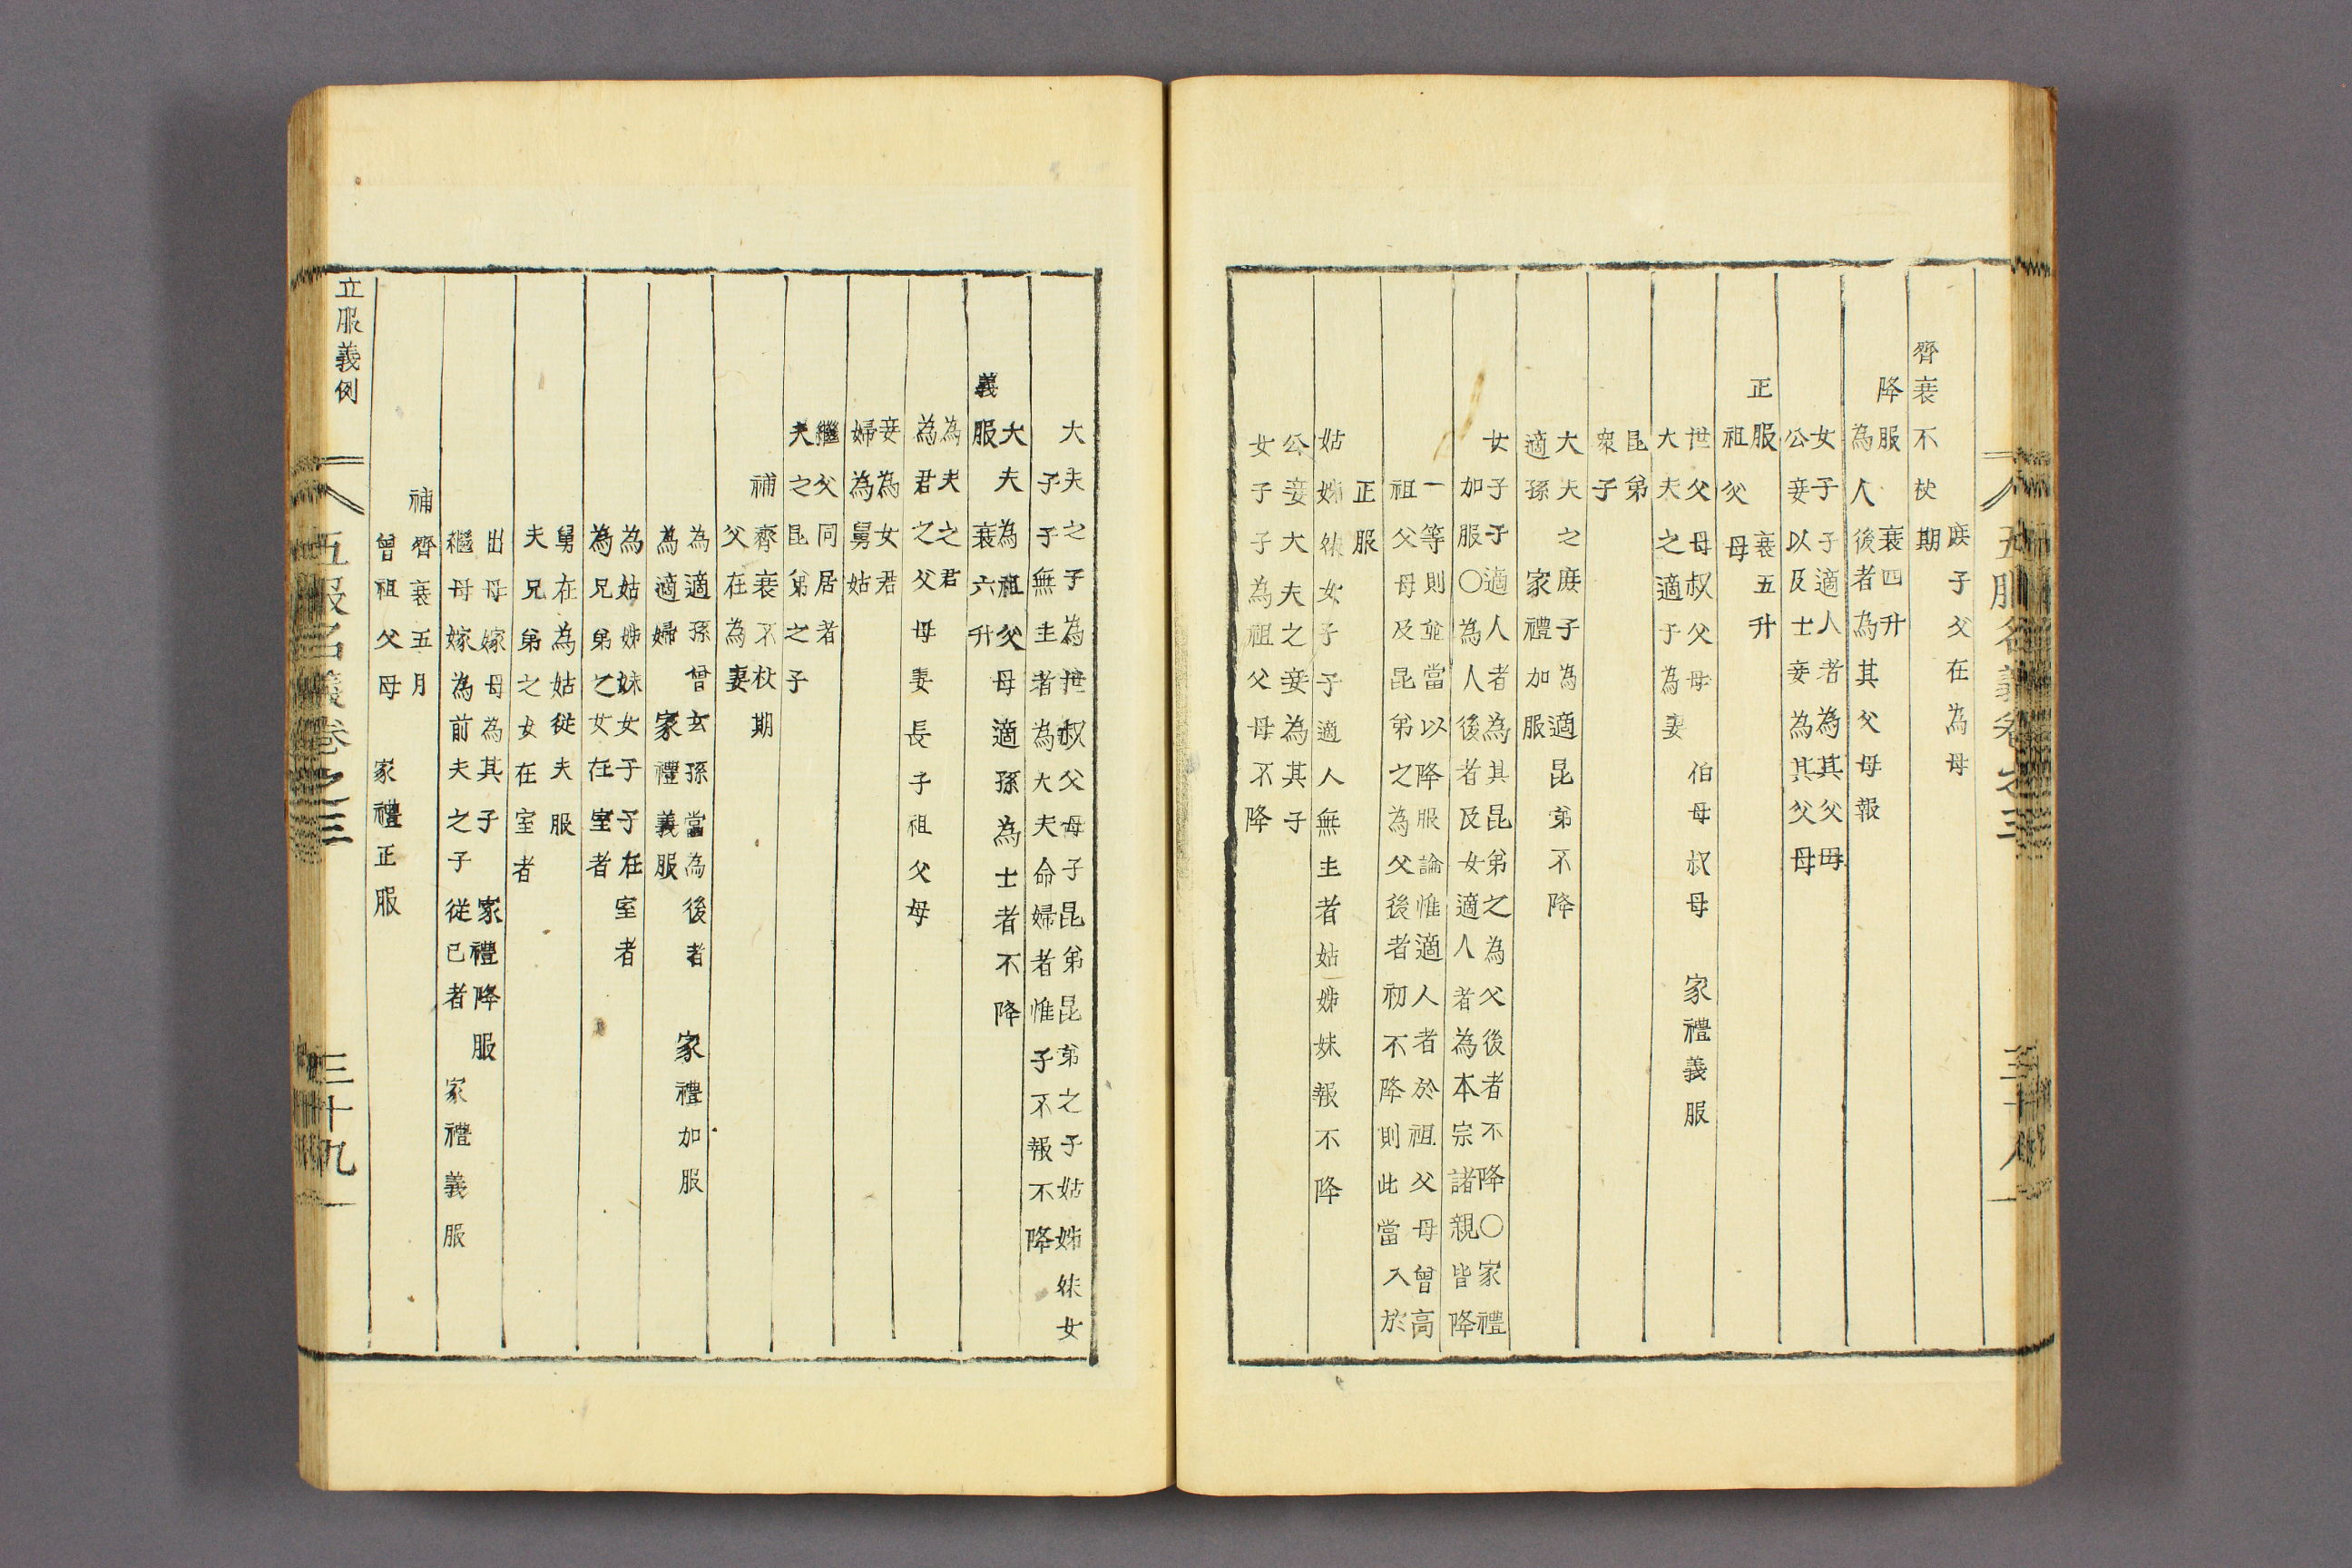 五服名義卷之三
三十八
庶子父在為母
齊衰不杖期
降服衰四升
為人後者為其父母報
女子子適人者為其父母
公妾以及士妾為其父母
正服衰五升
祖父母
世父母叔父母 伯母叔母 家禮義服
大夫之適子為妻
昆弟
衆子
大夫之庶子為適昆弟不降
適孫 家禮加服
女子子適人者為其昆弟之為父後者不降○家禮
加服○為人後者及女適人者為本宗諸親皆降
一等則並當以降服論惟適人者於祖父母曾高
祖父母及昆弟之為父後者初不降則此當入於
正服
姑姊妹女子子適人無主者姑姊妹報不降
公妾大夫之妾為其子
女子子為祖父母不降
大夫之子為世叔父母子昆弟昆弟之子姑姊妹女
子子無主者為大夫命婦者惟子不報不降
大夫為祖父母適孫為士者不降
義服衰六升
為夫之君
為君之父母妻長子祖父母
妾為女君
婦為舅姑
繼父同居者
夫之昆弟之子
補齊衰不杖期
父在為妻
為適孫曾玄孫當為後者 家禮加服
為適婦 家禮義服
為姑姊妹女子子在室者
為兄弟之女在室者
舅在為姑從夫服
夫兄弟之女在室者
出母嫁母為其子 家禮降服
繼母嫁為前夫之子從已者 家禮義服
補齊衰五月
曾祖父母 家禮正服
立服義例
五服名義卷之三
三十九